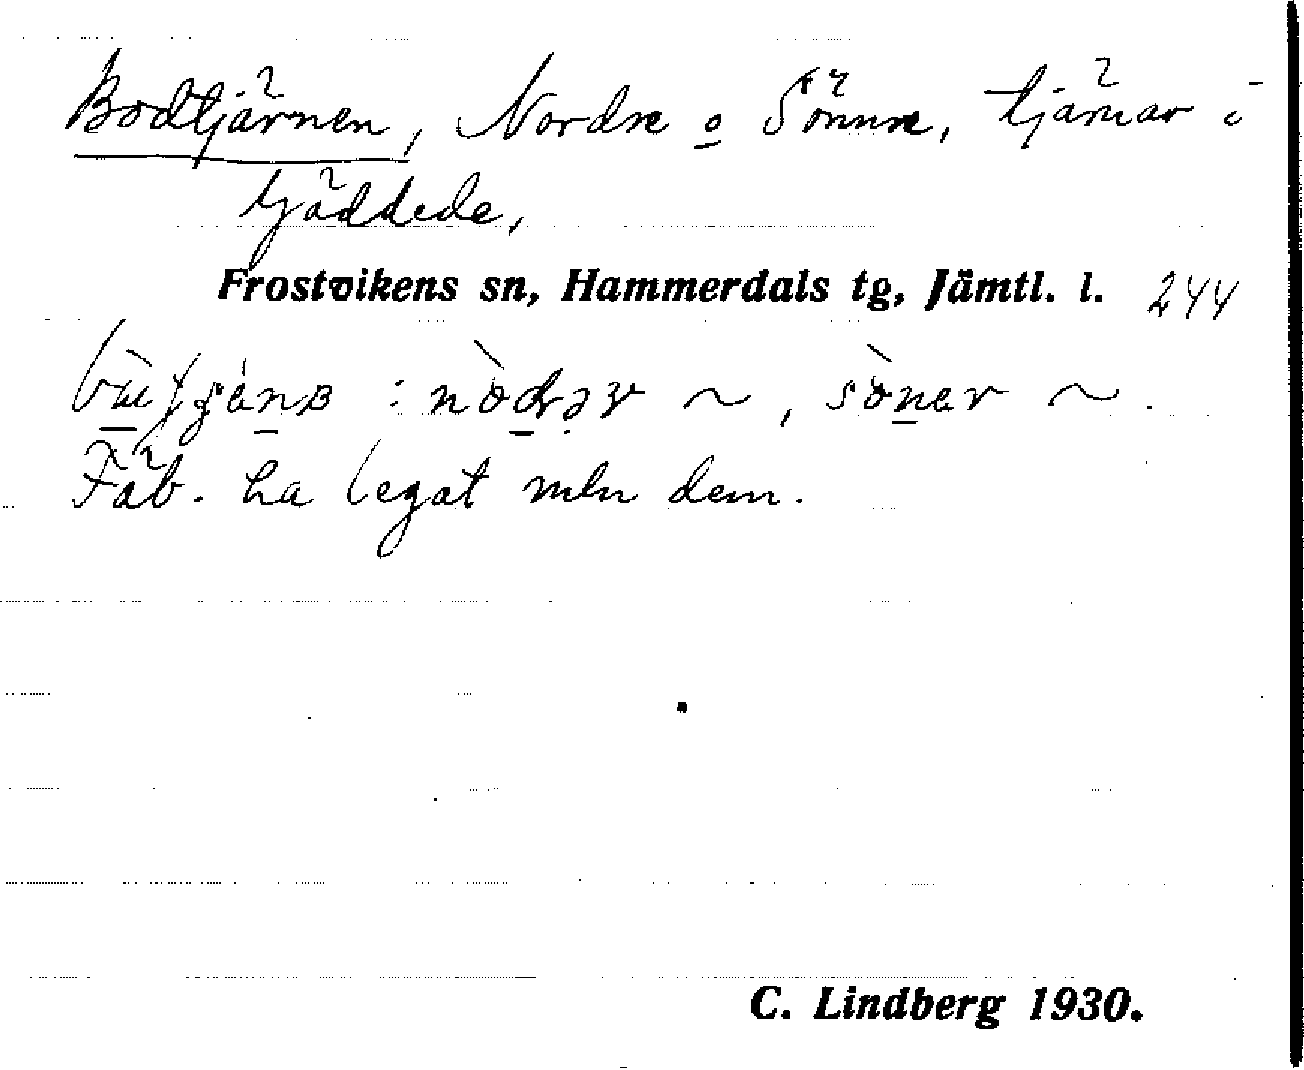 Bodtjärnen, Nordre o Sönnre, tjärnar i
Gäddede,
Frostvikens sn, Hammerdals tg, Jämtl. l. 244
Fäb. ha legat mln dem.
C. Lindberg 1930.